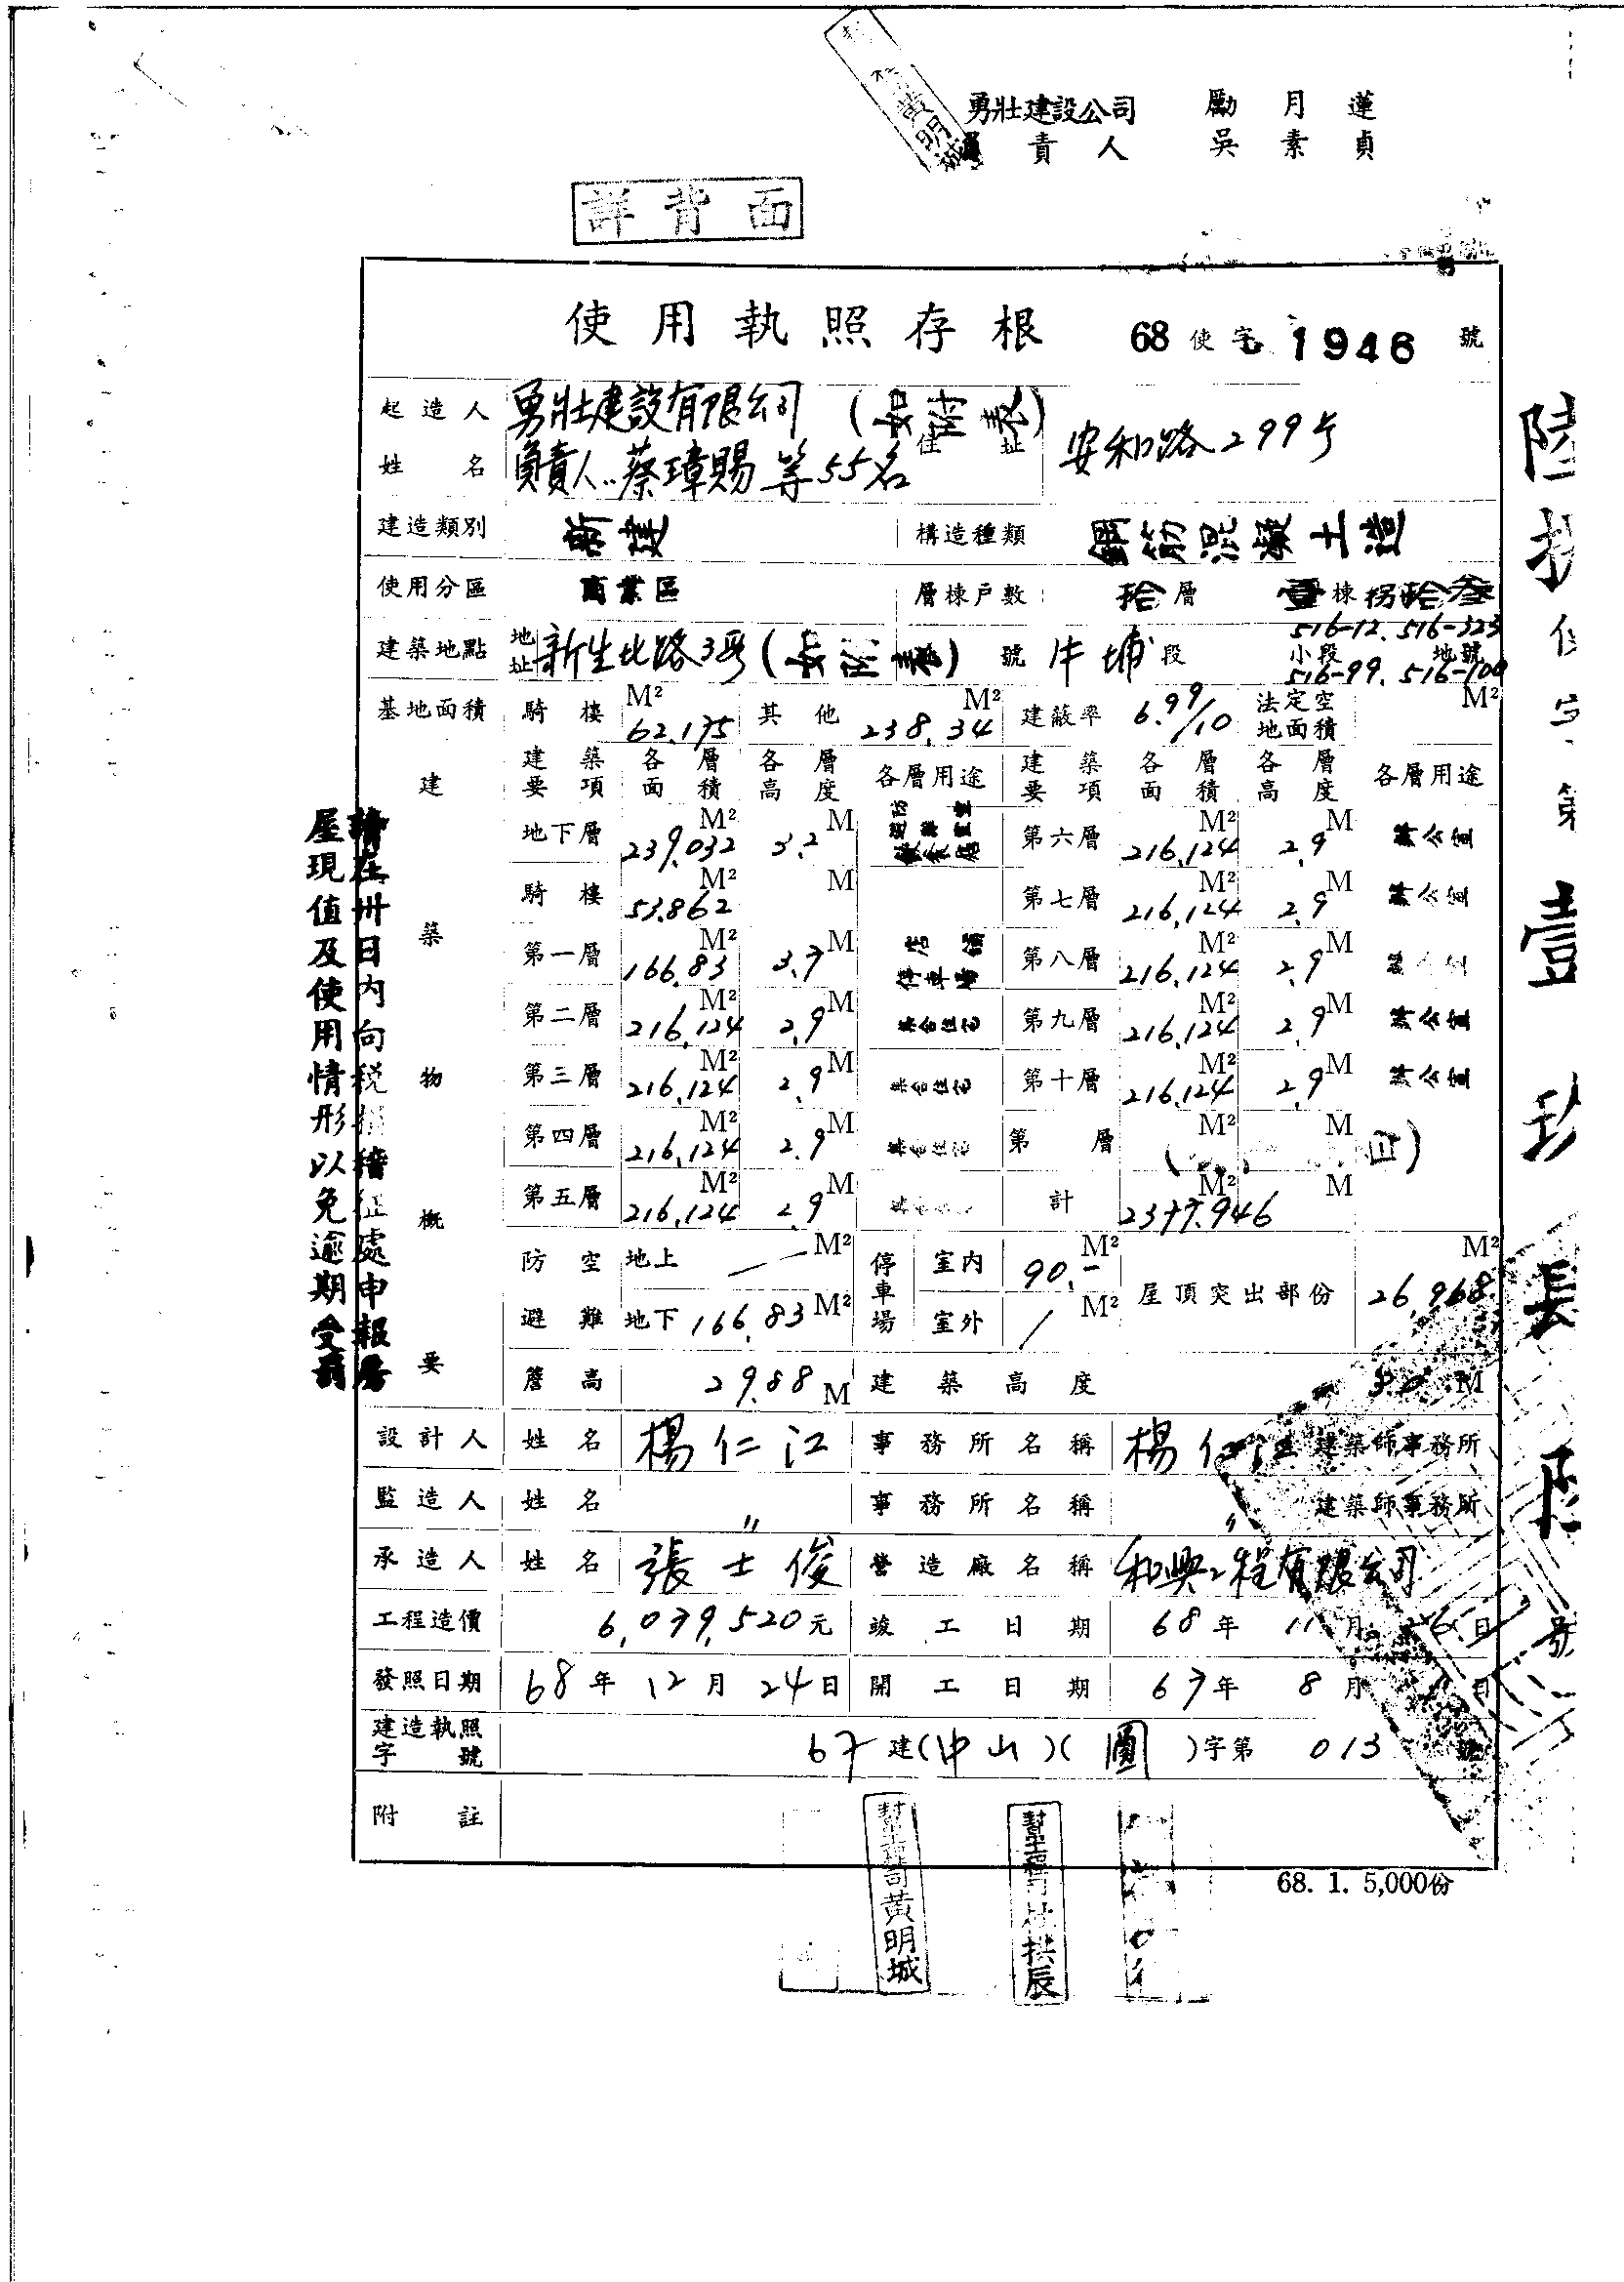 勇壯建設公司 勵月蓮
責人 吳素貞
黃明城
詳背面
使用執照存根 68使字 1946 號
起造人姓名 勇壯建設有限公司
負責人..蔡璋賜等55名
住址 安和路299号
建造類別 新建 構造種類 鋼筋混凝土造
使用分區 商業區 層棟戶數 拾層 壹棟 拐拾叁
建築地點 地址 新生北路3段 號 牛埔段 小段 地號
516-12. 516-323
516-99. 516-100
基地面積 騎樓 62.175 M² 其他 238.34 M² 建蔽率 6.99/10 法定空地面積 M²
建築物概要
建築要項 各層面積 各層高度 各層用途 建築要項 各層面積 各層高度 各層用途
地下層 239.032 M² 3.2 M 第六層 216.124 M² 2.9 M 辦公室
騎樓 53.862 M² M 第七層 216.124 M² 2.9 M 辦公室
第一層 166.83 M² 3.7 M 店舖 停車場 第八層 216.124 M² 2.9 M
第二層 216.124 M² 2.9 M 集合住宅 第九層 216.124 M² 2.9 M 辦公室
第三層 216.124 M² 2.9 M 集合住宅 第十層 216.124 M² 2.9 M 辦公室
第四層 216.124 M² 2.9 M 集合住宅 第 層 M² M
第五層 216.124 M² 2.9 M 計 2377.946 M² M
防空避難 地上 — M² 停車場 室內 90.- M² 屋頂突出部份 26.968 M²
地下 166.83 M² 室外 / M²
簷高 29.88 M 建築高度 M
設計人 姓名 楊仁江 事務所名稱 楊仁江 建築師事務所
監造人 姓名 〃 事務所名稱 〃 建築師事務所
承造人 姓名 張士俊 營造廠名稱 和興工程有限公司
工程造價 6,079,520元 竣工日期 68年 11月 26日
發照日期 68年 12月 24日 開工日期 67年 8月 日
建造執照字號 67建(中山)(圓)字第 013 號
附註
68. 1. 5,000份
黃明城
林拱辰
請在卅日內向稅捐稽征處申報房
屋現值及使用情形以免逾期受罰
陸 使字第壹 玖 長 陸 號